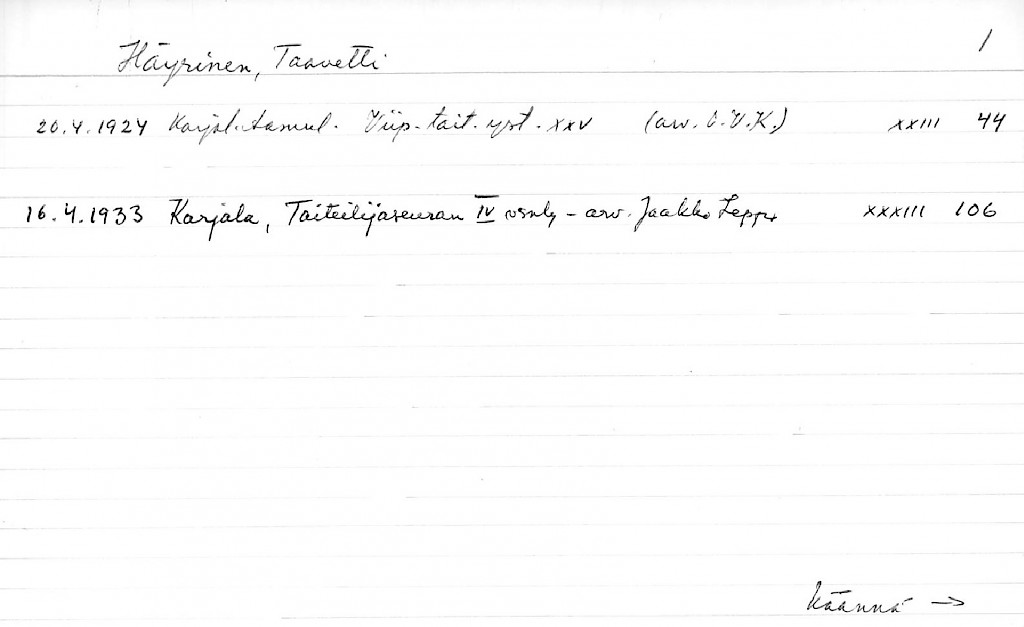 1
Häyrinen, Taavetti
20.4.1924 Karjal. Aamul. Viip. tait. yst. XXV (arv. O.V.K.) XXIII 44
16.4.1933 Karjala, Taiteilijaseuran IV vsnly - arv. Jaakko Leppo XXXIII 106
Käännä →